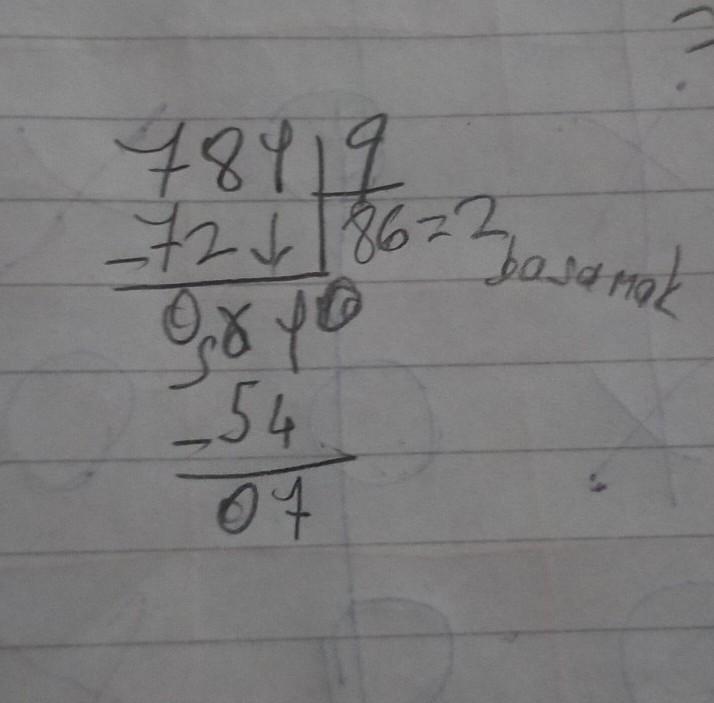 784 9
-72↓ 86=2
basamak
064
5
-54
07